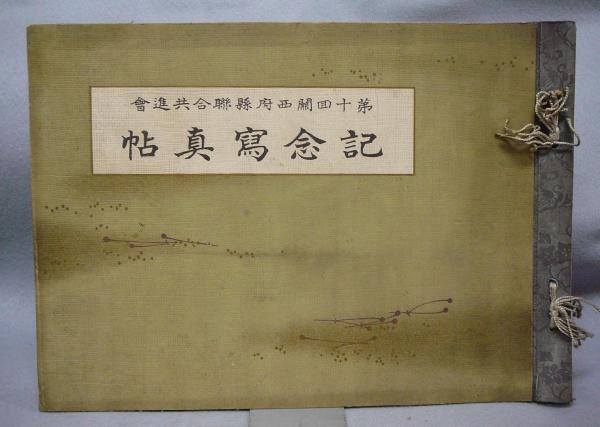 第十回關西府縣聯合共進會
記念寫真帖